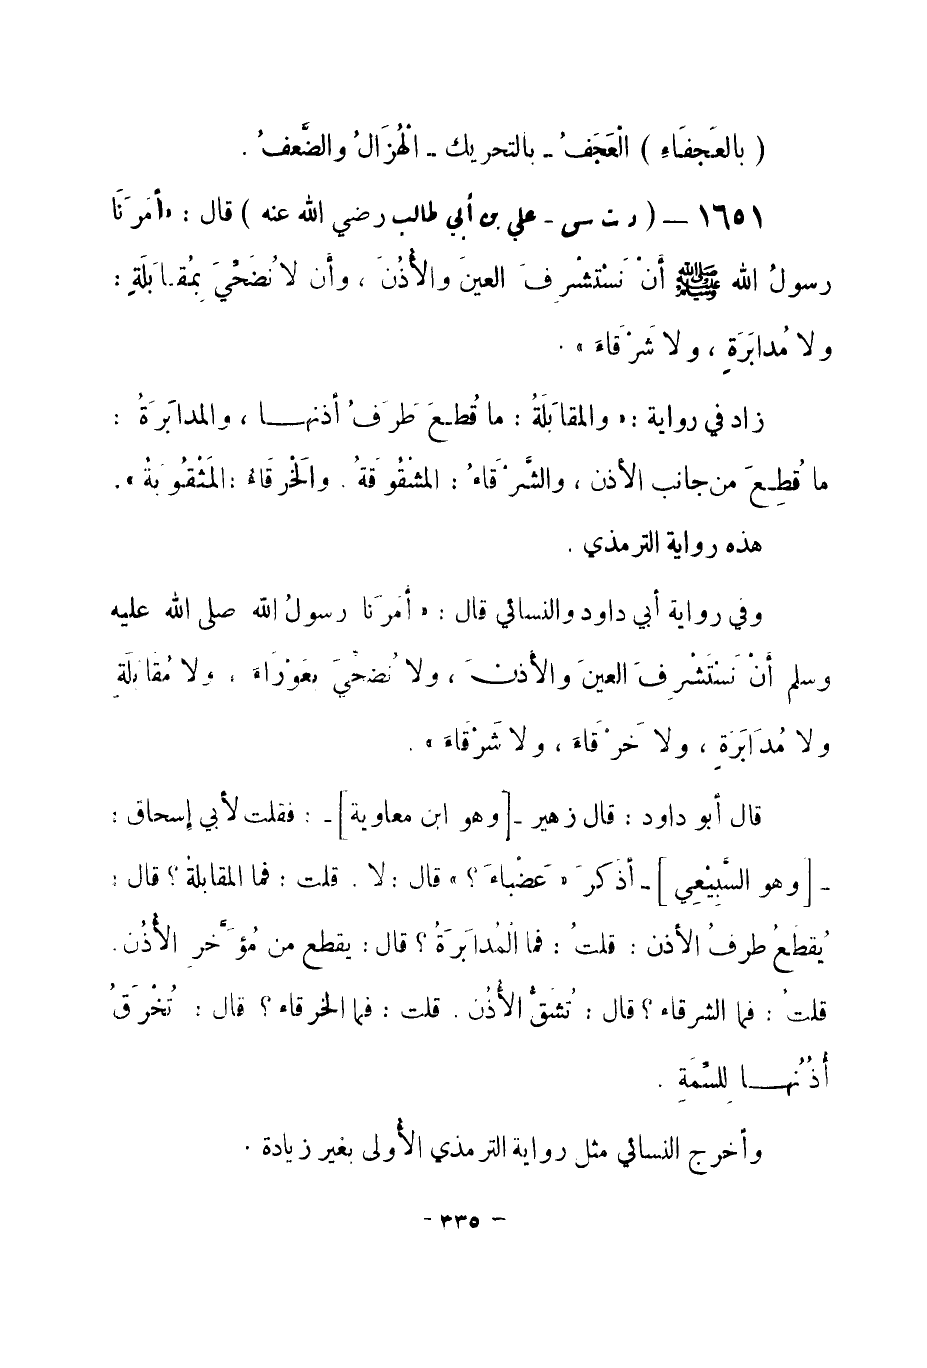 ( بالعَجفَاءِ ) الْعَجَفُ ـ بالتحريك ـ الْهُزَالُ والضَّعفُ .
١٦٥١ — ( د ت س - علي بن أبي طالب رضي الله عنه ) قال : «أمَرَنَا
رسولُ الله ﷺ أنْ نَسْتَشْرِفَ العينَ والأُذُنَ ، وأن لا نُضَحِّيَ بِمُقَابَلَةٍ :
ولا مُدابَرَةٍ ، ولا شَرْقَاءَ » .
زاد في رواية : « والمقابَلَةُ : ما قُطِعَ طَرَفُ أذنها ، والمدابَرَةُ :
ما قُطِعَ من جانب الأذن ، والشَّرْقَاءُ : المشْقُوقَةُ . والْخَرقَاءُ : المَثْقُوبَةُ » .
هذه رواية الترمذي .
وفي رواية أبي داود والنسائي قال : « أمَرَنَا رسولُ الله صلى الله عليه
وسلم أنْ نَسْتَشْرِفَ العينَ والأذنَ ، ولا نُضحِّيَ بعَوْرَاءَ ، ولا مُقَابَلَةٍ
ولا مُدَابَرَةٍ ، ولا خَرْقَاءَ ، ولا شَرْقَاءَ » .
قال أبو داود : قال زهير ـ [وهو ابن معاوية] ـ : فقلت لأبي إسحاق :
ـ [وهو السَّبِيْعِي] ـ أذَكَرَ « عَضْبَاءَ ؟ » قال : لا . قلت : فما المقابلةُ ؟ قال :
يُقطَعُ طرفُ الأذن : قلتُ : فما الْمُدابَرَةُ ؟ قال : يقطع من مُؤَخَّرِ الأُذُن .
قلتُ : فما الشرقاء ؟ قال : تُشَقُّ الأُذُن . قلت : فما الخرقاء ؟ قال : تُخْرَقُ
أُذُنُها لِلسِّمَةِ .
وأخرج النسائي مثل رواية الترمذي الأولى بغير زيادة .
- ٣٣٥ -